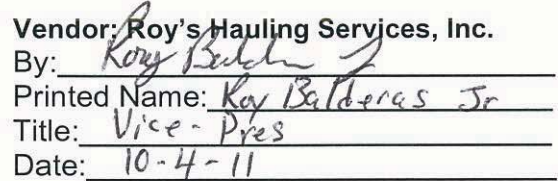 Vendor: Roy's Hauling Services, Inc.
By: Roy Balder Jr
Printed Name: Roy Balderas Jr
Title: Vice-Pres
Date: 10-4-11